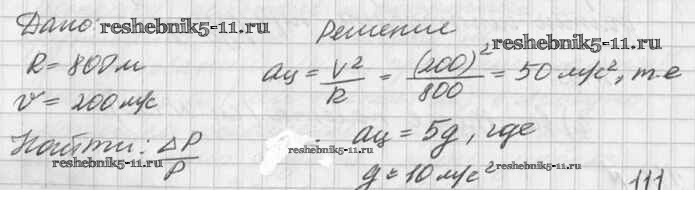 Дано reshebnik5-11.ru
R = 800 м
v = 200 м/с
Найти: ΔP/P
reshebnik5-11.ru
Решение
reshebnik5-11.ru
aц = V²/R = (200)²/800 = 50 м/с², т.е
aц = 5g, где
reshebnik5-11.ru
g = 10 м/с²
reshebnik5-11.ru
111